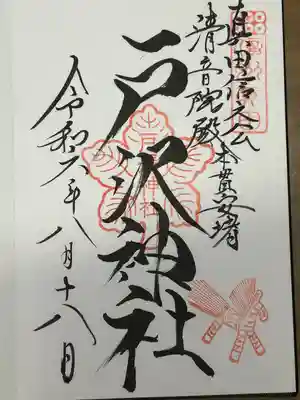 真田信之公
清音院殿 本貫安堵
戸沢神社
令和六年八月十八日